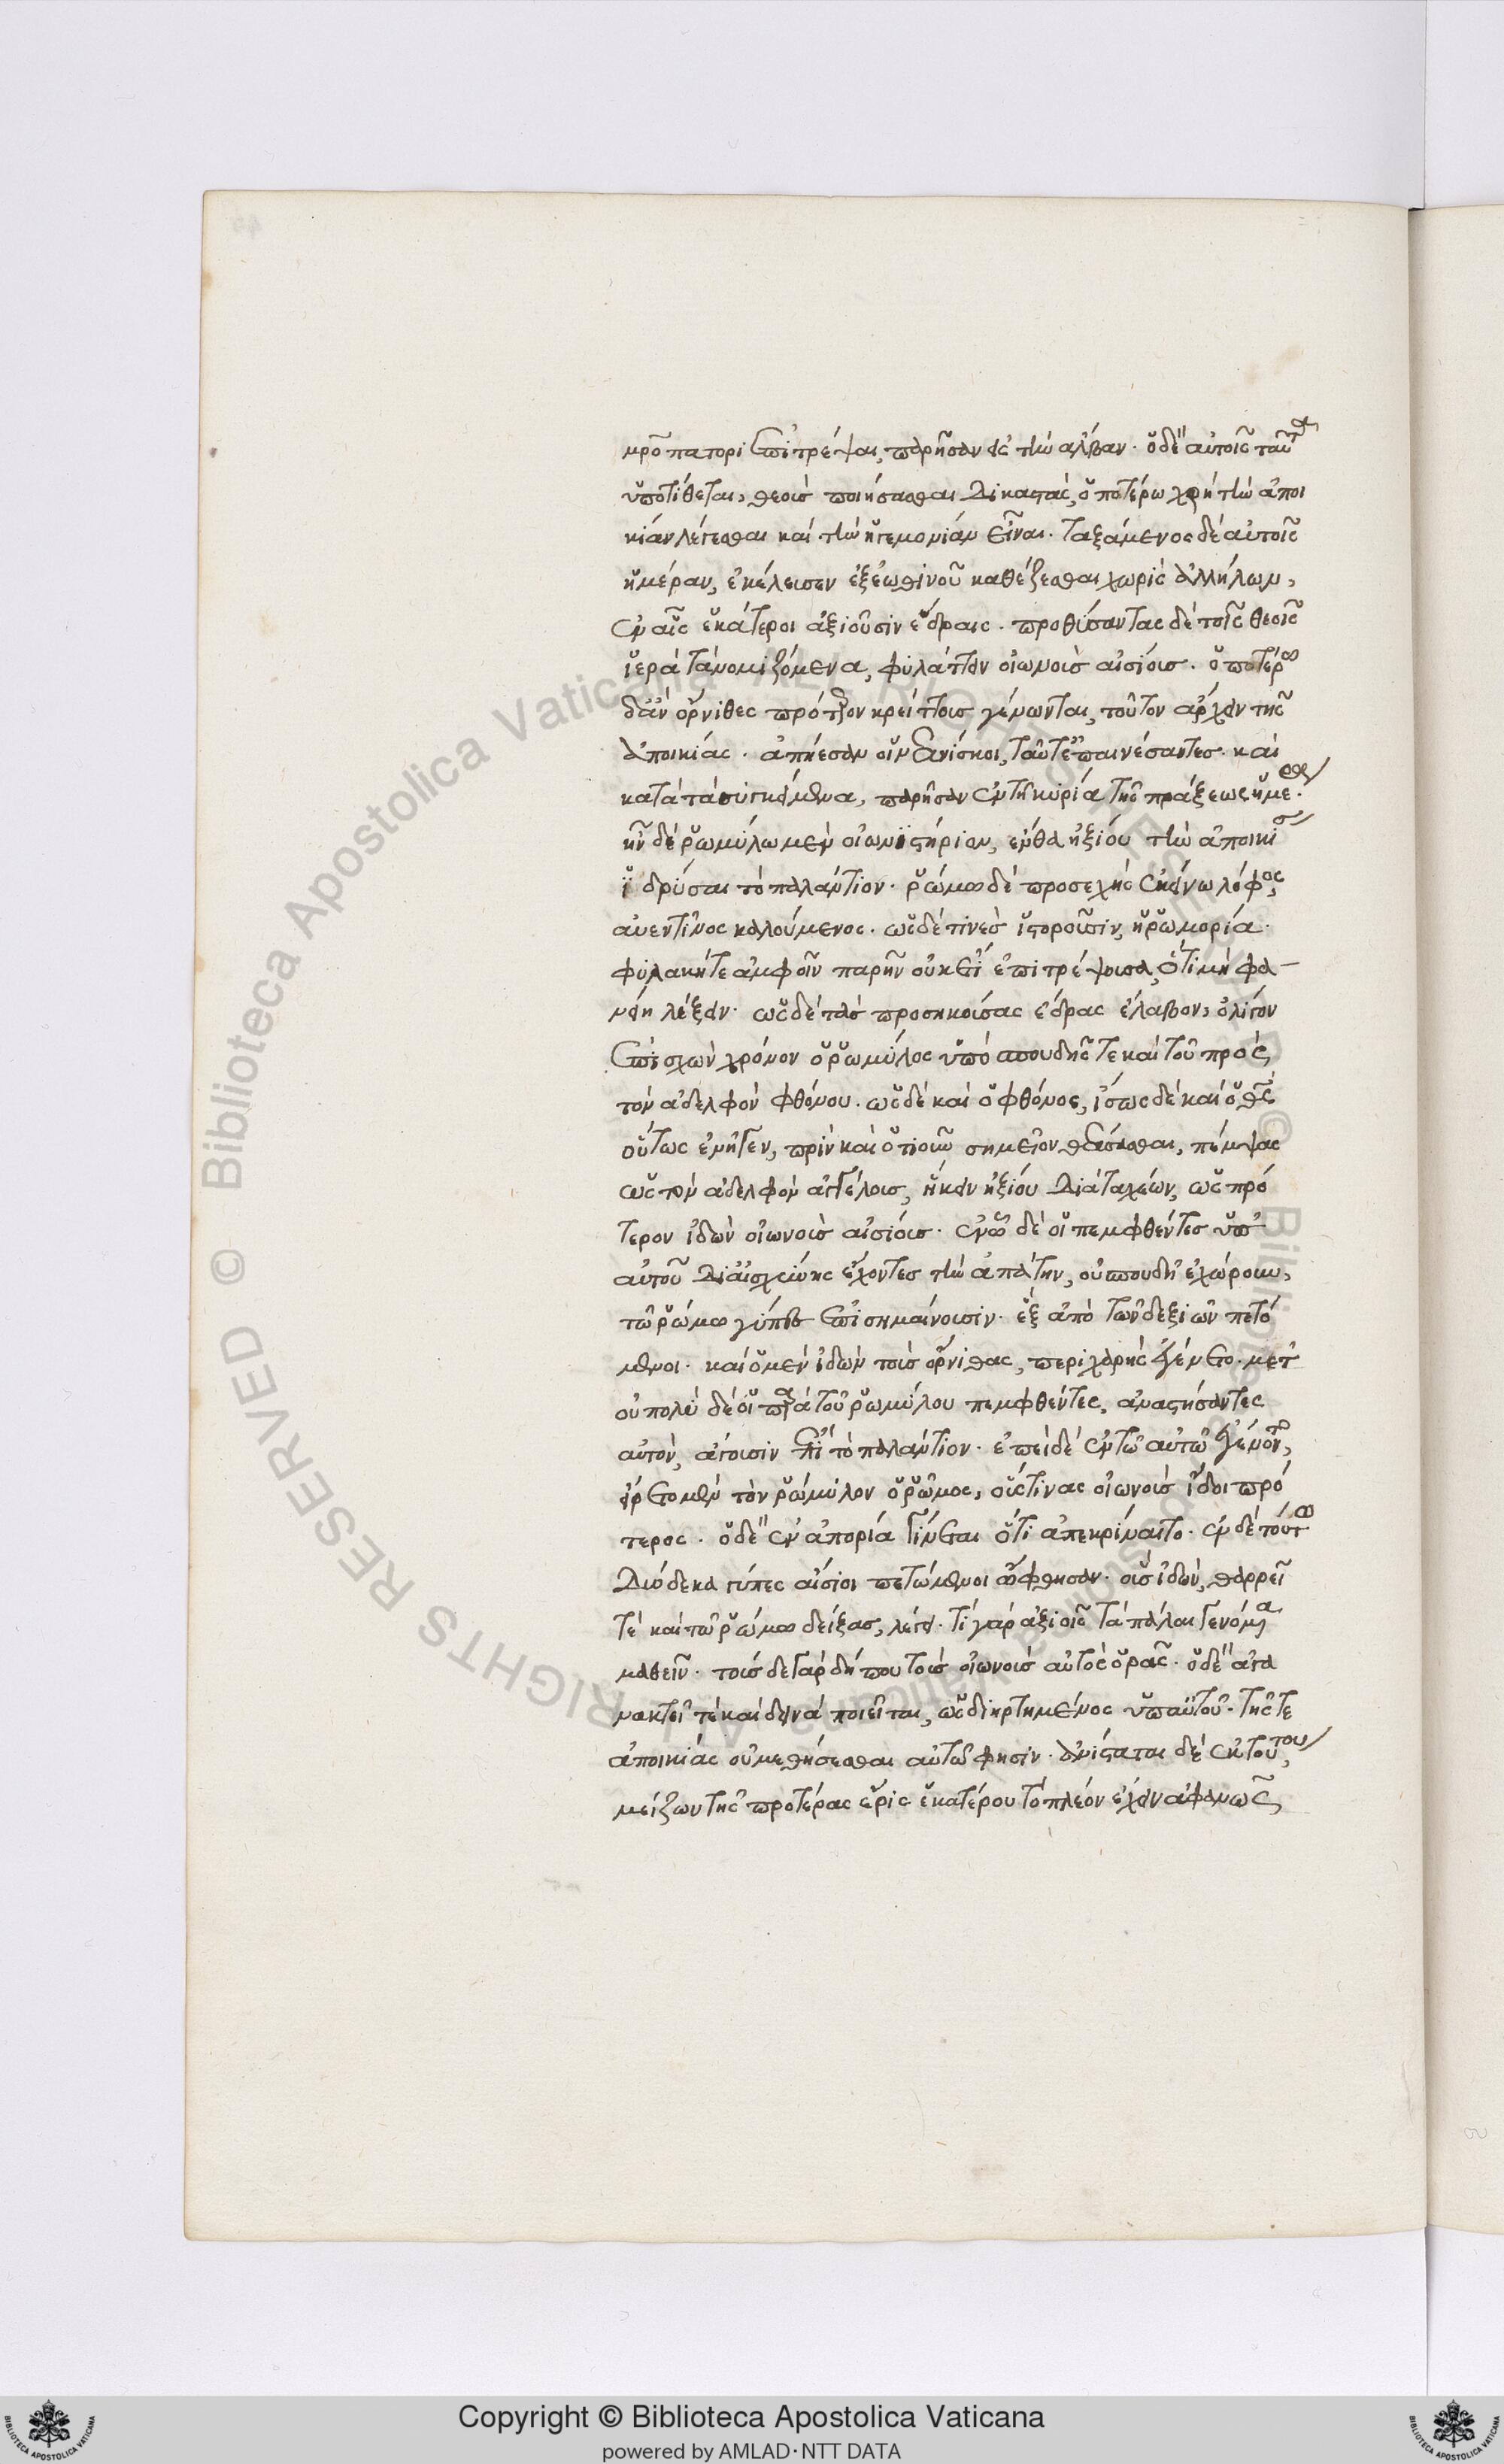 μρο πατορι ἐπιτρέψαι, παρῆσαν εἰς τὴν ἄλβαν. ὁ δὲ αὐτοῖς ταῦτα
ὑποτίθεται, θεοὺς ποιήσασθαι δικαστάς, ὁποτέρω χρὴ τὴν ἀποι
κίαν λέγεσθαι καὶ τὴν ἡγεμονίαν εἶναι. ταξάμενος δὲ αὐτοῖς
ἡμέραν, ἐκέλευσεν ἐξ ἑωθινοῦ καθέζεσθαι χωρὶς ἀλλήλων,
ἐν αἷς ἑκάτεροι ἀξιοῦσιν ἕδραις. προθύσαντας δὲ τοῖς θεοῖς
ἱερὰ τὰ νομιζόμενα, φυλάττειν οἰωνοὺς αἰσίους. ὁποτέρω
δ' ἂν ὄρνιθες πρότερον κρείττους γένωνται, τοῦτον ἄρχειν τῆς
ἀποικίας. ἀπῄεσαν οὖν νεανίσκοι, ταῦτ' ἐπαινέσαντες. καὶ
κατὰ τὰ συγκείμενα, παρῆσαν ἐν τῇ κυρία τῆς πράξεως ἡμέρα.
ἦν δὲ ῥωμύλω μὲν οἰωνιστήριον, ἔνθα ἠξίου τὴν ἀποικί
ἱδρύσαι τὸ παλάντιον. ῥώμω δὲ προσεχὴς ἐκείνω λόφος,
αὐεντῖνος καλούμενος. ὡς δέ τινες ἱστοροῦσιν, ἡ ῥωμορία.
φυλακή τε ἀμφοῖν παρῆν οὐκ ἐπιτρέψουσα, ὅτι μὴ φα
νείη λέξειν. ὡς δὲ τὰς προσηκούσας ἕδρας ἔλαβον, ὀλίγον
ἐπισχὼν χρόνον ὁ ῥωμύλος ὑπὸ σπουδῆς τε καὶ τοῦ πρὸς
τὸν ἀδελφὸν φθόνου. ὡς δὲ καὶ ὁ φθόνος, ἴσως δὲ καὶ ὁ θεὸς
οὕτως ἐνῆγεν, πρὶν καὶ ὁτιοῦν σημεῖον θεάσασθαι, πέμψας
ὡς τὸν ἀδελφὸν ἀγγέλους, ἥκειν ἠξίου διὰ ταχέων, ὡς πρό
τερον ἰδὼν οἰωνοὺς αἰσίους. ἐν ᾧ δὲ οἱ πεμφθέντες ὑπ'
αὐτοῦ δι' αἰσχύνης ἔχοντες τὴν ἀπάτην, οὐ σπουδῇ ἐχώρουν,
τῶ ῥώμω γύπες ἐπισημαίνουσιν. ἓξ ἀπὸ τῶν δεξιῶν πετό
μενοι. καὶ ὁ μὲν ἰδὼν τοὺς ὄρνιθας, περιχαρὴς ἐγένετο. μετ'
οὐ πολὺ δὲ οἱ παρὰ τοῦ ῥωμύλου πεμφθέντες, ἀναστήσαντες
αὐτὸν, ἄγουσιν ἐπὶ τὸ παλάντιον. ἐπεὶ δὲ ἐν τῶ αὐτῶ ἐγένοντο,
ἤρετο μὲν τὸν ῥωμύλον ὁ ῥῶμος, οὕς τινας οἰωνοὺς ἴδοι πρό
τερος. ὁ δὲ ἐν ἀπορία γίνεται ὅτι ἀποκρίναιτο. ἐν δὲ τούτω
δυόδεκα γύπες αἴσιοι πετόμενοι ὤφθησαν. οὓς ἰδὼν, θαρρεῖ
τὲ καὶ τῶ ῥώμω δείξας, λέγει. τί γὰρ ἀξιοῖς τὰ πάλαι γενόμενα
μαθεῖν. τούσδε γὰρ δή που τοὺς οἰωνοὺς αὐτὸς ὁρᾶς. ὁ δὲ ἀγα
νακτεῖ τὲ καὶ δεινὰ ποιεῖται, ὡς διηρτημένος ὑπ' αὐτοῦ. τῆς τε
ἀποικίας οὐ μεθήσεσθαι αὐτῶ φησίν. ἀνίσταται δὲ ἐκ τούτου,
μείζων τῆς προτέρας ἔρις ἑκατέρου τὸ πλέον ἔχειν ἀφανῶς
Copyright © Biblioteca Apostolica Vaticana
powered by AMLAD·NTT DATA